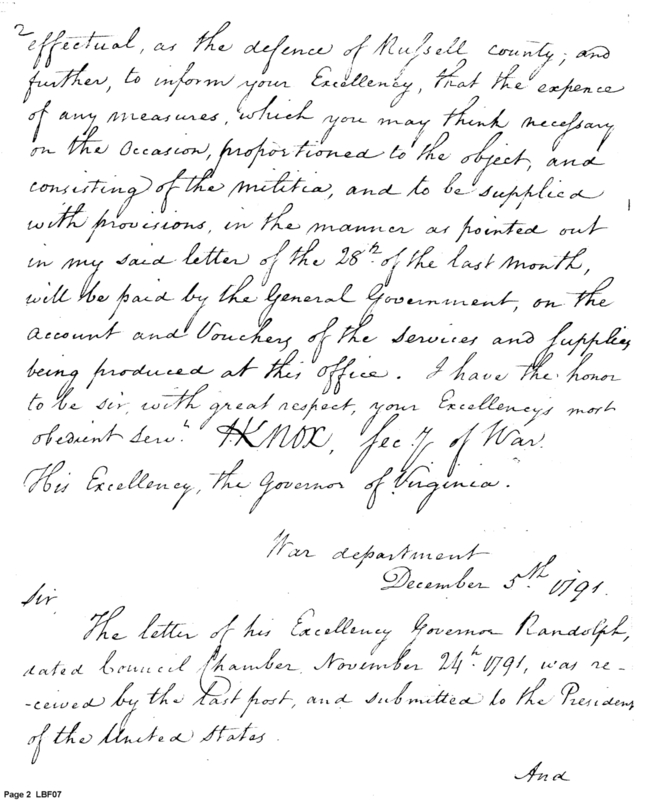 2
effectual, as the defence of Russell county; and
further, to inform your Excellency, that the expence
of any measures, which you may think necessary
on the Occasion, proportioned to the object, and
consisting of the militia, and to be supplied
with provisions, in the manner as pointed out
in my said letter of the 28th. of the last month,
will be paid by the General Government, on the
account and Vouchers of the services and supplies
being produced at this office. I have the honor
to be sir, with great respect, your Excellency's most
obedient Servt. HKNOX, Sec.y of War.
His Excellency, the Governor of Virginia."
War department
December 5th. 1791.
Sir
The letter of his Excellency Governor Randolph,
dated Council Chamber, November 24th. 1791, was re-
-ceived by the last post, and submitted to the President
of the United States.
And
Page 2 LBF07